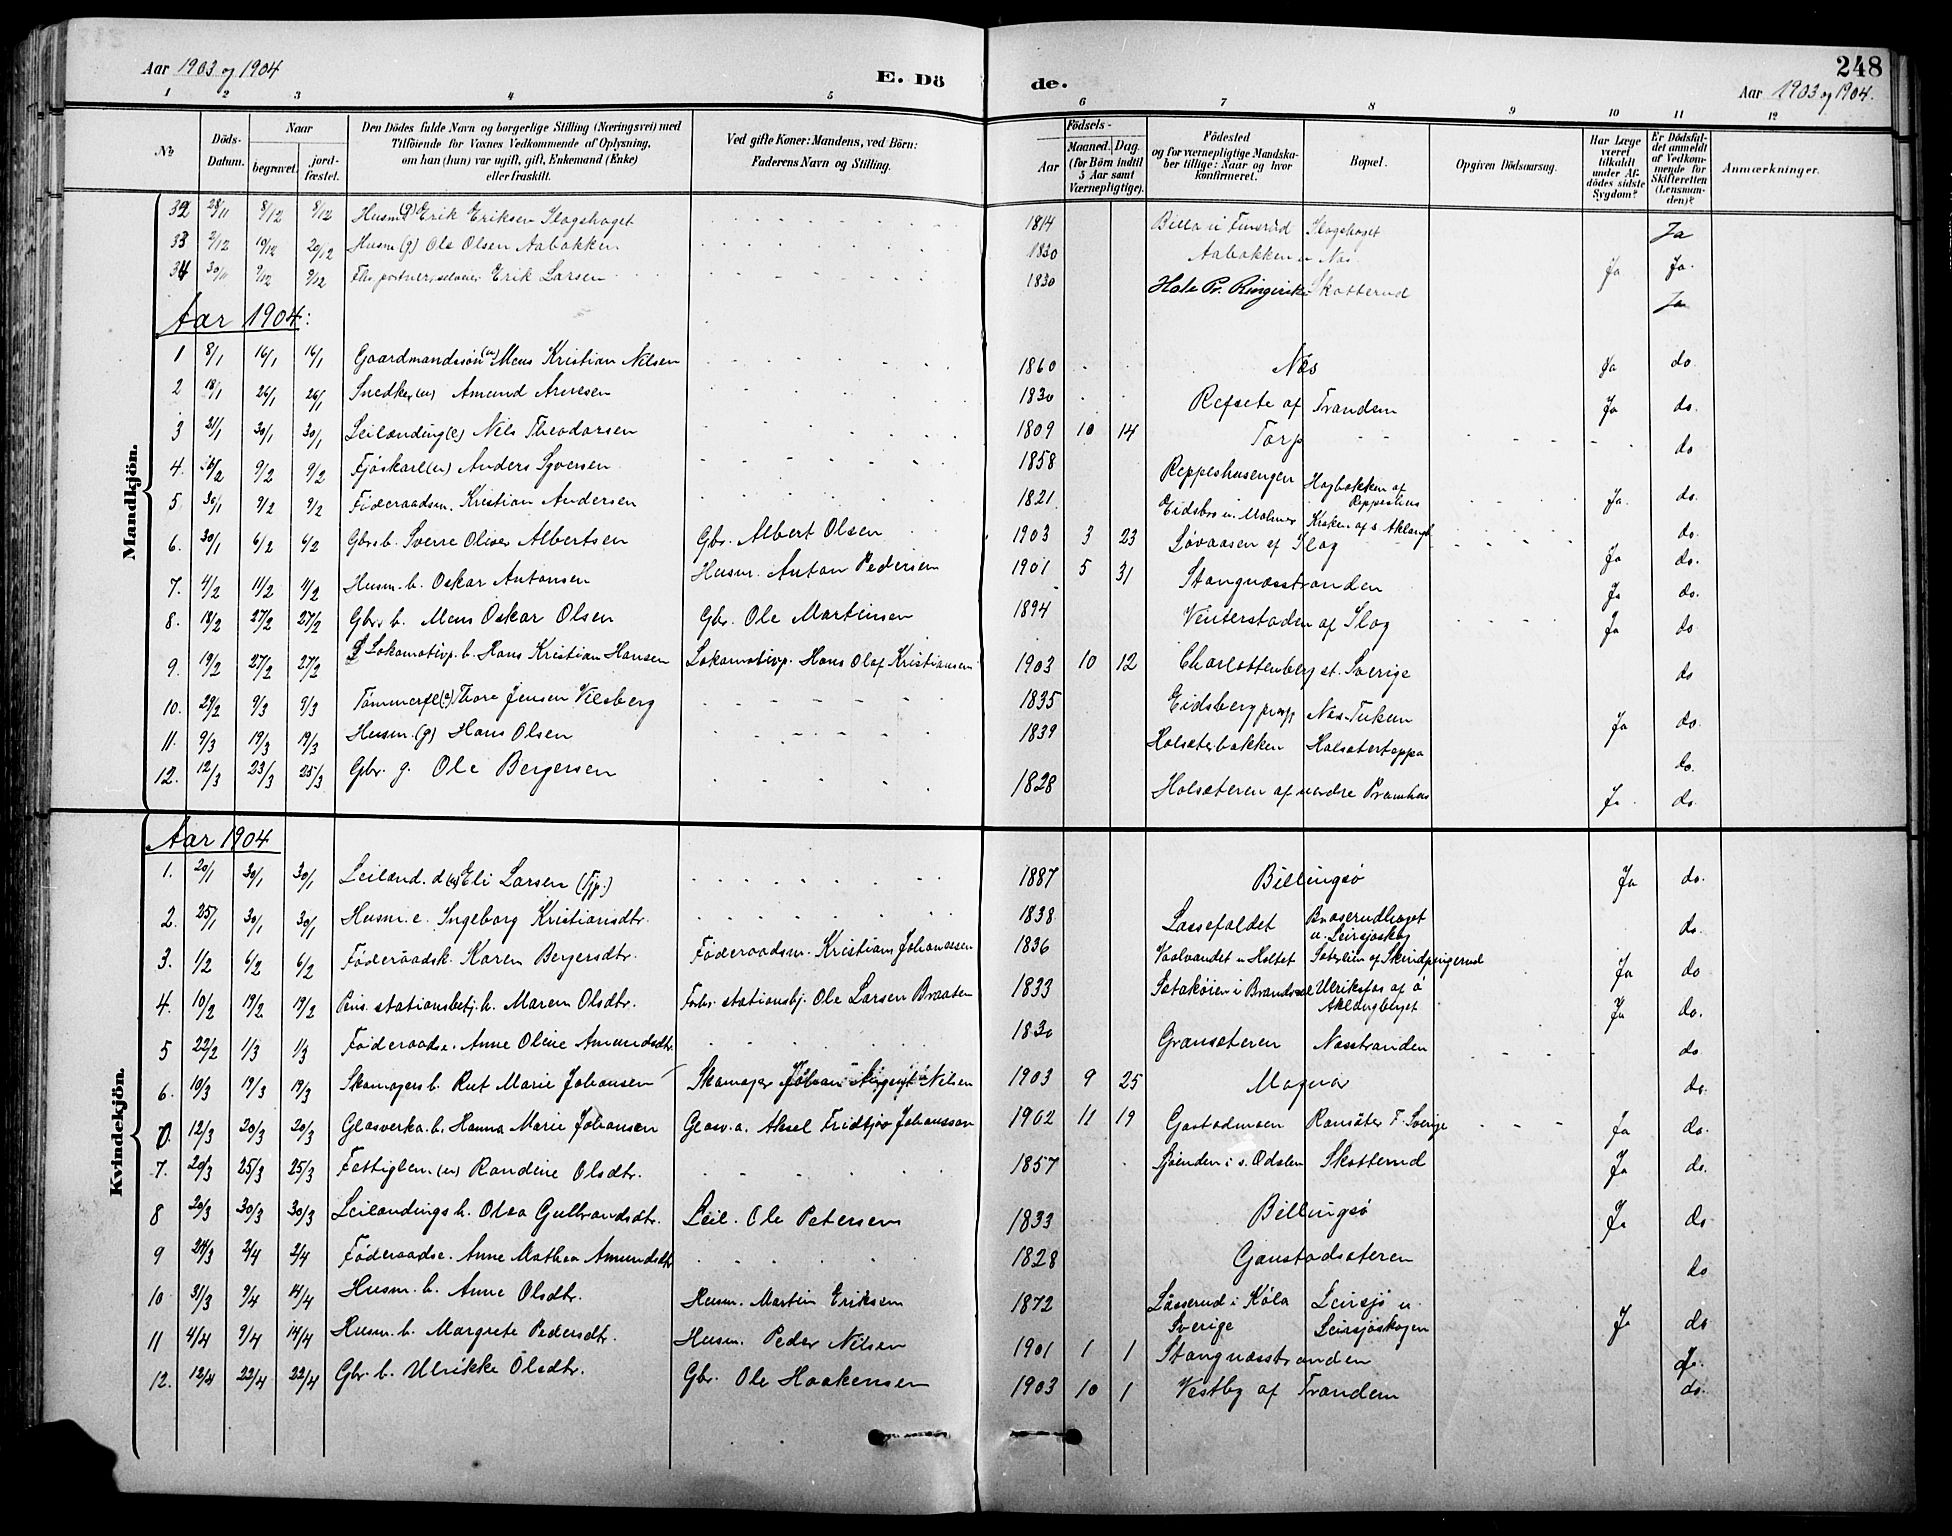 Aar 1903 og 1904
E. Dö
de.
248
Aar 1903 og 1904.
1 2 3 4 5 6 7 8 9 10 11 12
No
Döds-Datum.
Naar
begravet.
jord-fæstet.
Den Dödes fulde Navn og borgerlige Stilling (Næringsvei) med
Tilföiende for Voxnes Vedkommende af Oplysning,
om han (hun) var ugift, gift, Enkemand (Enke)
eller fraskilt.
Ved gifte Koner: Mandens, ved Börn:
Faderens Navn og Stilling.
Födsels-
Aar
Maaned. Dag.
(for Börn indtil
5 Aar samt
Værnepligtige).
Födested
og for værnepligtige Mandska-
ber tillige: Naar og hvor
konfirmeret.
Bopæl.
Opgiven Dödsaarsag.
Har Læge
været
tilkaldt
under Af-
dödes sidste
Sygdom?
Er Dödsfal-
det anmeldt
af Vedkom-
mende for
Skifteretten
(Lensman-
den)?
Anmærkninger.
Mandkjön.
32 28/11 8/12 8/12 Husm. (g) Erik Eriksen Slogshaget 1814 Slogshaget Ja
33 2/12 19/12 20/12 Husm (g) Ole Olsen Aabakken 1830 Aabakken u Nas Ja Ja.
34 30/11 9/12 9/12 Erik Larsen 1830 Hole Pr. Ringerike Skotterud Ja
Aar 1904:
1 8/1 16/1 16/1 Gaardmandssön (u) Mens Kristian Nilsen 1860 Næs Ja do.
2 18/1 26/1 26/1 Snedker (u) Amund Arnesen 1830 Refsete af Trandem Ja do.
3 21/1 30/1 30/1 Leilænding (e) Nils Theodorsen 1809 10 14 Torp do
4. 9/2 9/2 Fjöskarl (u) Anders Syversen 1858 Reppeshusengen Haybakken af Reppeshus Ja. do.
5 30/1 9/2 9/2 Föderaadsm. Kristian Andersen 1821 Eidsbro u. Malmer Kroken af s. Aklangb. do.
6. 30/1 6/2 6/2 Gbr. b. Sverre Oliver Albertsen Gbr. Albert Olsen 1903 3 23 Lövaasen af Slog Ja do.
7. 4/2 11/2 11/2 Husm. b. Oskar Antonsen Husm. Anton Pedersen 1901 5 31 Stangnæsstranden Ja do.
8. 18/2 27/2 27/2 Gbr. b. Mens Oskar Olsen Gbr. Ole Martinsen 1894 Venterstaden af Slog Ja do
9. 19/2 27/2 27/2 Lokomotivp. b. Hans Kristian Hansen Lokomotivp. Hans Olaf Kristiansen 1903 10 12 Charlottenberg st. Sverige do
10. 29/2 9/3 9/3 Tömmerfl. Thore Jensen Vilsberg 1835 Eidsberg Næs-Tuken Ja do.
11. 9/3 19/3 19/3 Husm. (g) Hans Olsen 1839 Holsæterbakken Holsætertoppa do.
12. 12/3 23/3 25/3 Gbr. g. Ole Bergersen 1828 Holsæteren af nordre Pramhus Ja. do.
Kvindekjön.
Aar 1904
1. 20/1 30/1 30/1 Leilænd. d (u) Eli Larsen (Tjp.) 1887 Billingsö Ja do.
2. 25/1 30/1 30/1 Husm. e. Ingeborg Kristiansdtr. 1838 Lassefaldet Braserudhaget u. Leirsjöskog do.
3. 1/2 6/2 6/2 Föderaadsk. Karen Bergersdtr. Föderaadsm. Kristian Johannesen 1836 Vaalvandet u Holtet Sæterlien af Skindpungerud Ja do
4. 10/2 19/2 19/2 Pens. stationsbetj. h. Maren Olsdtr. Forhv. stationsbj. Ole Larsen Braaten 1833 Sataköien i Brandval Ulriksfos af ö Aklangberget Ja do.
5 22/2 1/3 1/3 Föderaadse. Anne Oline Amundsdtr. 1830 Gransæteren Næsstranden do
6. 10/3 19/3 19/3 Skomagers b. Rut Marie Johansen Skomager Johan August Nilsen 1903 9 25 Magnor do.
7. 12/3 20/3 20/3 Glasverka. b. Hanna Marie Johansen Glasv. a. Aksel Fridtjov Johansson 1902 11 19 Gastadmoen Ransäter F. Sverige Ja do.
7. 20/3 25/3 25/3 Fattiglem. (u) Randine Olsdtr. 1857 Sjöenden i s. Odalen Skotterud Ja do.
8 20/3 30/3 30/3 Leilændings h. Olea Gulbrandsdtr. Leil. Ole Petersen 1833 Billingsö Ja do
9 24/3 2/4 2/4 Föderaadse. Anne Mathea Amundsdtr 1828 Gaustadsæteren do
10 31/3 9/4 14/4 Husm. h. Anne Olsdtr. Husm. Martin Eriksen 1872 Lässerud i Köla Sverige Leirsjö u. Leirsjöskogen Ja do
11 4/4 9/4 14/4 Husm. b. Margrete Pedersdtr. Husm. Peder Nilsen 1901 1 1 Stangnæsstranden do.
12. 12/4 22/4 22/4 Gbr. b. Ulrikke Olsdtr. Gbr. Ole Haakensen 1903 10 1 Vestby af Trandem do.